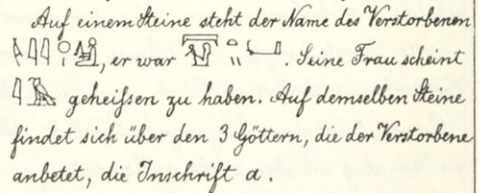 Auf einem Steine steht der Name des Verstorbenen
, er war . Seine Frau scheint
geheißen zu haben. Auf demselben Steine
findet sich über den 3 Göttern, die der Verstorbene
anbetet, die Inschrift a.